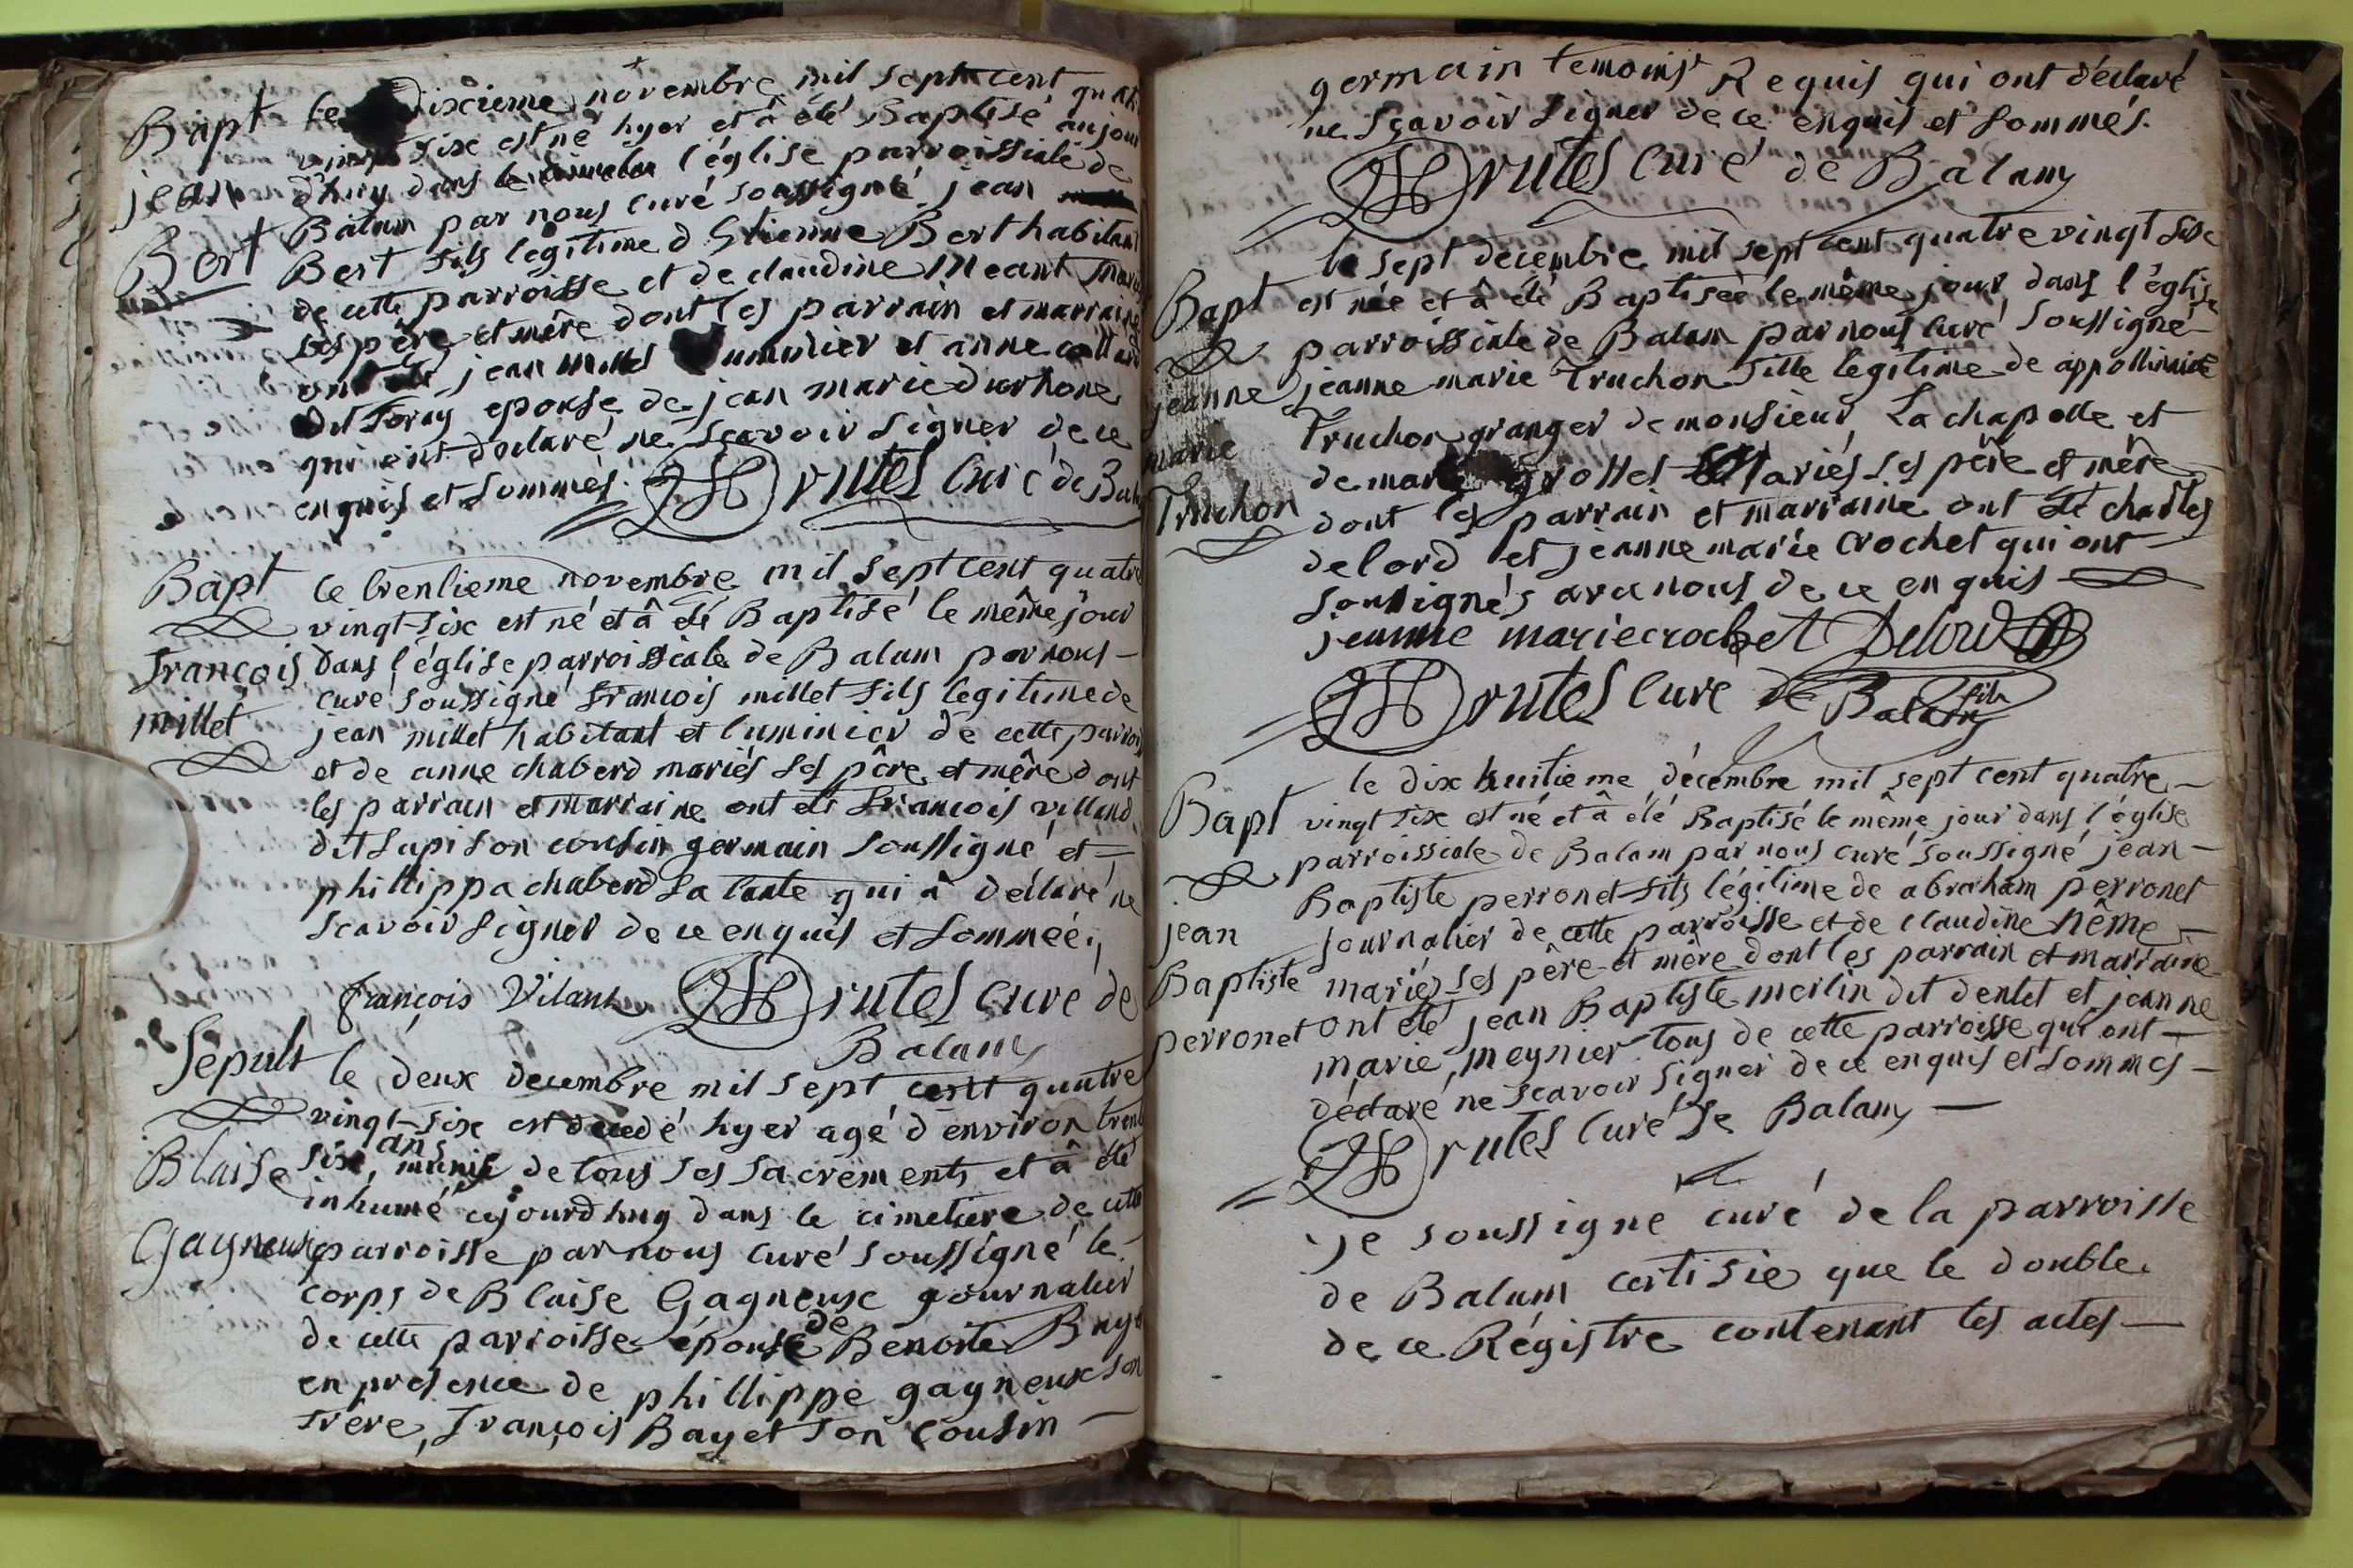 Bapt
jean
Bert
le dixcieme novembre mil sept cent quat
vingt sixe est né hyer et â été Baptisé aujour
d'huy dans l'église parroissiale de
Balam par nous curé soussigné jean
Bert fils legitime d'Etienne Bert habitant
de cette parroisse et de claudine Meant mari
ses père et mère dont les parrain et marraine
ont été jean millet luminier et anne
dit Foray epouse de jean marie durhone
qui ont déclaré ne sçavoir signer de ce
enquis et sommés. Brutel curé de Bala
Bapt
françois
millet
le trentieme novembre mil sept cent quatre
vingt-sixe est né et â été Baptisé le même jour
dans l'église parroissiale de Balam par nous
curé soussigné françois millet fils legitime de
jean millet habitant et luminier de cette parrois
et de anne chaberd mariés ses père et mère dont
les parrain et marraine ont été françois villand
dit Lapison cousin germain soussigné et
phillippa chaberd sa tante qui â déclaré ne
scavoir signer de ce enquis et sommée,
françois Vilant Brutel curé de
Balam
Sepult
Blaise
Gagneux
le deux decembre mil sept cent quatre
vingt-sixe est decedé hyer agé d'environ trent
sixe ans, munis de tous ses sacrements et â été
inhumé ajourdhuy dans le cimetiere de cette
parroisse par nous curé soussigné le
corps de Blaise Gagneuxe journalier
de cette parroisse épouse de Benoite Baye
en presence de phillippe gagneuxe son
frère, François Bayet son cousin
germain temoins Requis qui ont déclaré
ne sçavoir signer de ce enquis et sommés.
Brutel curé de Balam
Bapt
jeanne
marie
Truchon
le sept decembre mil sept cent quatre vingt sixe
est née et â été Baptisée le même jour dans l'église
parroissiale de Balam par nous curé soussigné
jeanne marie Truchon fille legitime de appollinaire
Truchon granger de monsieur La chapelle et
de marie grottel Mariés ses père et mère
dont les parrain et marraine ont été charles
delord et jeanne marie crochet qui ont
soussignés avec nous de ce enquis
jeanne marie crochet Delord fils
Brutel curé de Balam
Bapt
jean
Baptiste
perronet
le dixe huitieme décembre mil sept cent quatre
vingt sixe est né et â été Baptisé le même jour dans l'église
parroissiale de Balam par nous curé soussigné jean
Baptiste perronet fils légitime de abraham perronet
journalier de cette parroisse et de claudine Nême
mariés ses père et mère dont les parrain et marraine
ont été jean Baptiste merlin dit dentet et jeanne
marie meynier tous de cette parroisse qui ont
déclaré ne scavoir signer de ce enquis et sommés
Brutel curé de Balam
je soussigné curé de la parroisse
de Balam certifie que le double
de ce Régistre contenant les actes